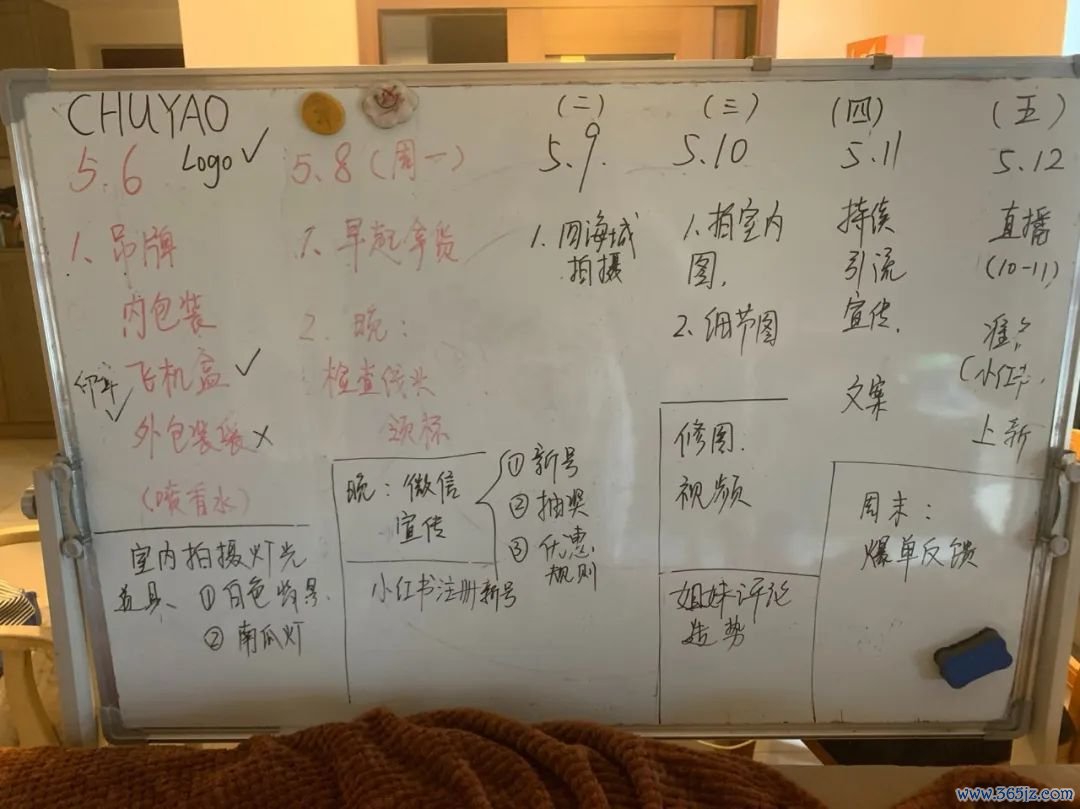 CHUYAO
5.6 Logo ✓
1. 吊牌
内包装
飞机盒 ✓
外包装袋 ×
(喷香水)
室内拍摄灯光
道具、①白色背景
②南瓜灯
5.8(周一)
1. 早起拿货
2. 晚:
检查线头
领标
晚:微信
宣传
①新号
②抽奖
③优惠
规则
小红书注册新号
(二)
5.9.
1. 四海城
拍摄
(三)
5.10
1. 拍室内
图.
2. 细节图
修图.
视频
姐妹评论
造势
(四)
5.11
持续
引流
宣传.
文案
(五)
5.12
直播
(10-11)
准备
(小红书.
上新
周末:
爆单反馈
www.365jz.com